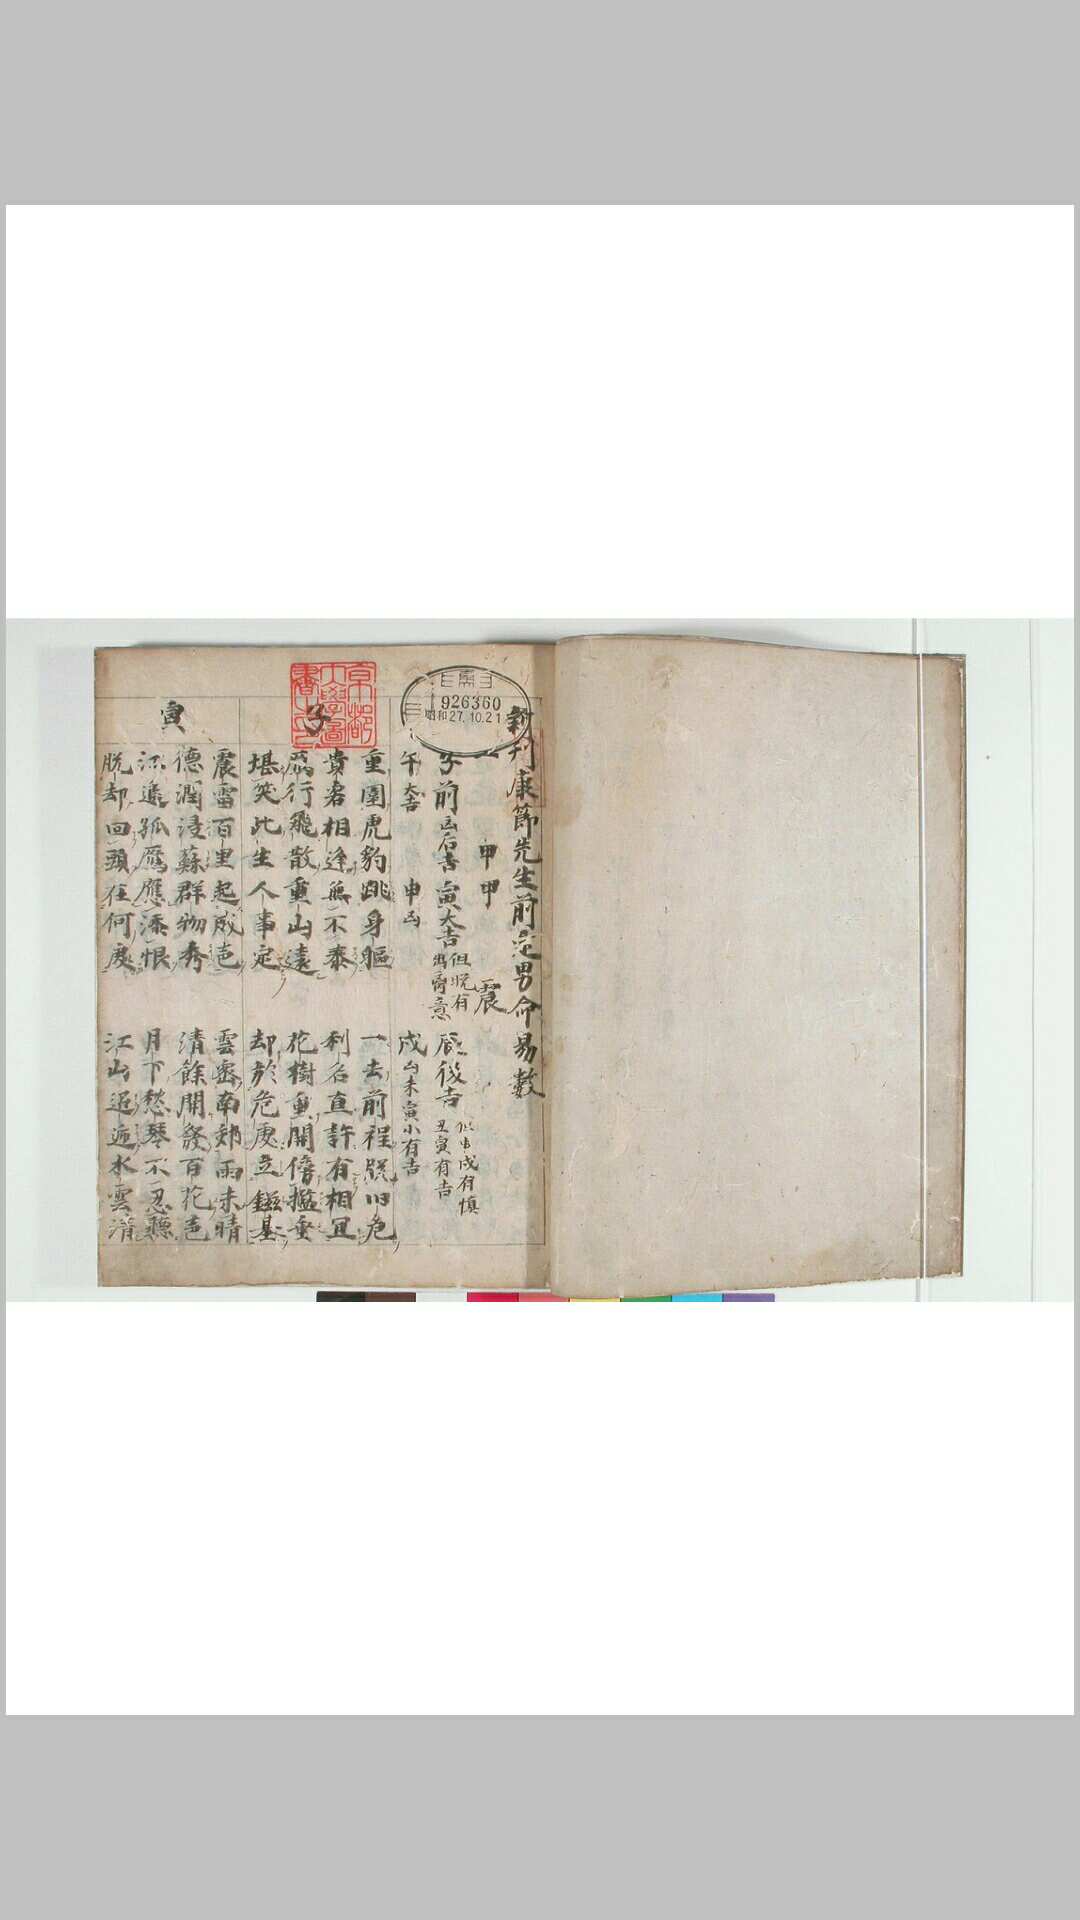 新刊康節先生前定男命易數
甲甲 震
子前凶后吉 寅大吉 但晚有 辰後吉 丑寅有吉
午大吉 申凶 戌凶未寅小有吉
子
重圍虎豹跳身軀 一去前程脫旧危
貴君相逢無不泰 利名直許有相宜
鴈行飛散重山遠 花樹重開傍檻垂
堪笑此生人事定 却於危處立鎡基
寅
震雷百里起威色 雲密南郊雨未晴
德潤浸蘇群物秀 清餘開發百花色
江邊孤鴈應添恨 月下愁琴不忍聽
脫却回頭在何處 江山迢遞水雲清
京都
大學圖
書之印
926360
昭和27.10.21